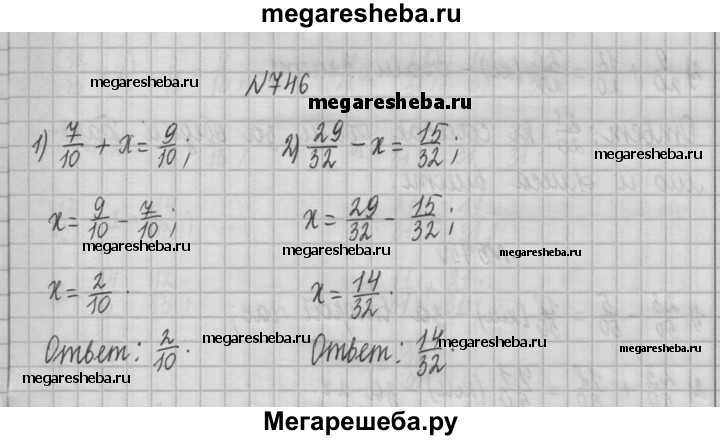 megaresheba.ru
№746
megaresheba.ru
megaresheba.ru
1) 7/10 + x = 9/10; 2) 29/32 - x = 15/32;
megaresheba.ru
x = 9/10 - 7/10; x = 29/32 - 15/32;
megaresheba.ru megaresheba.ru megaresheba.ru
x = 2/10. x = 14/32.
Ответ: 2/10. Ответ: 14/32.
megaresheba.ru megaresheba.ru
megaresheba.ru megaresheba.ru
Мегарешеба.ру